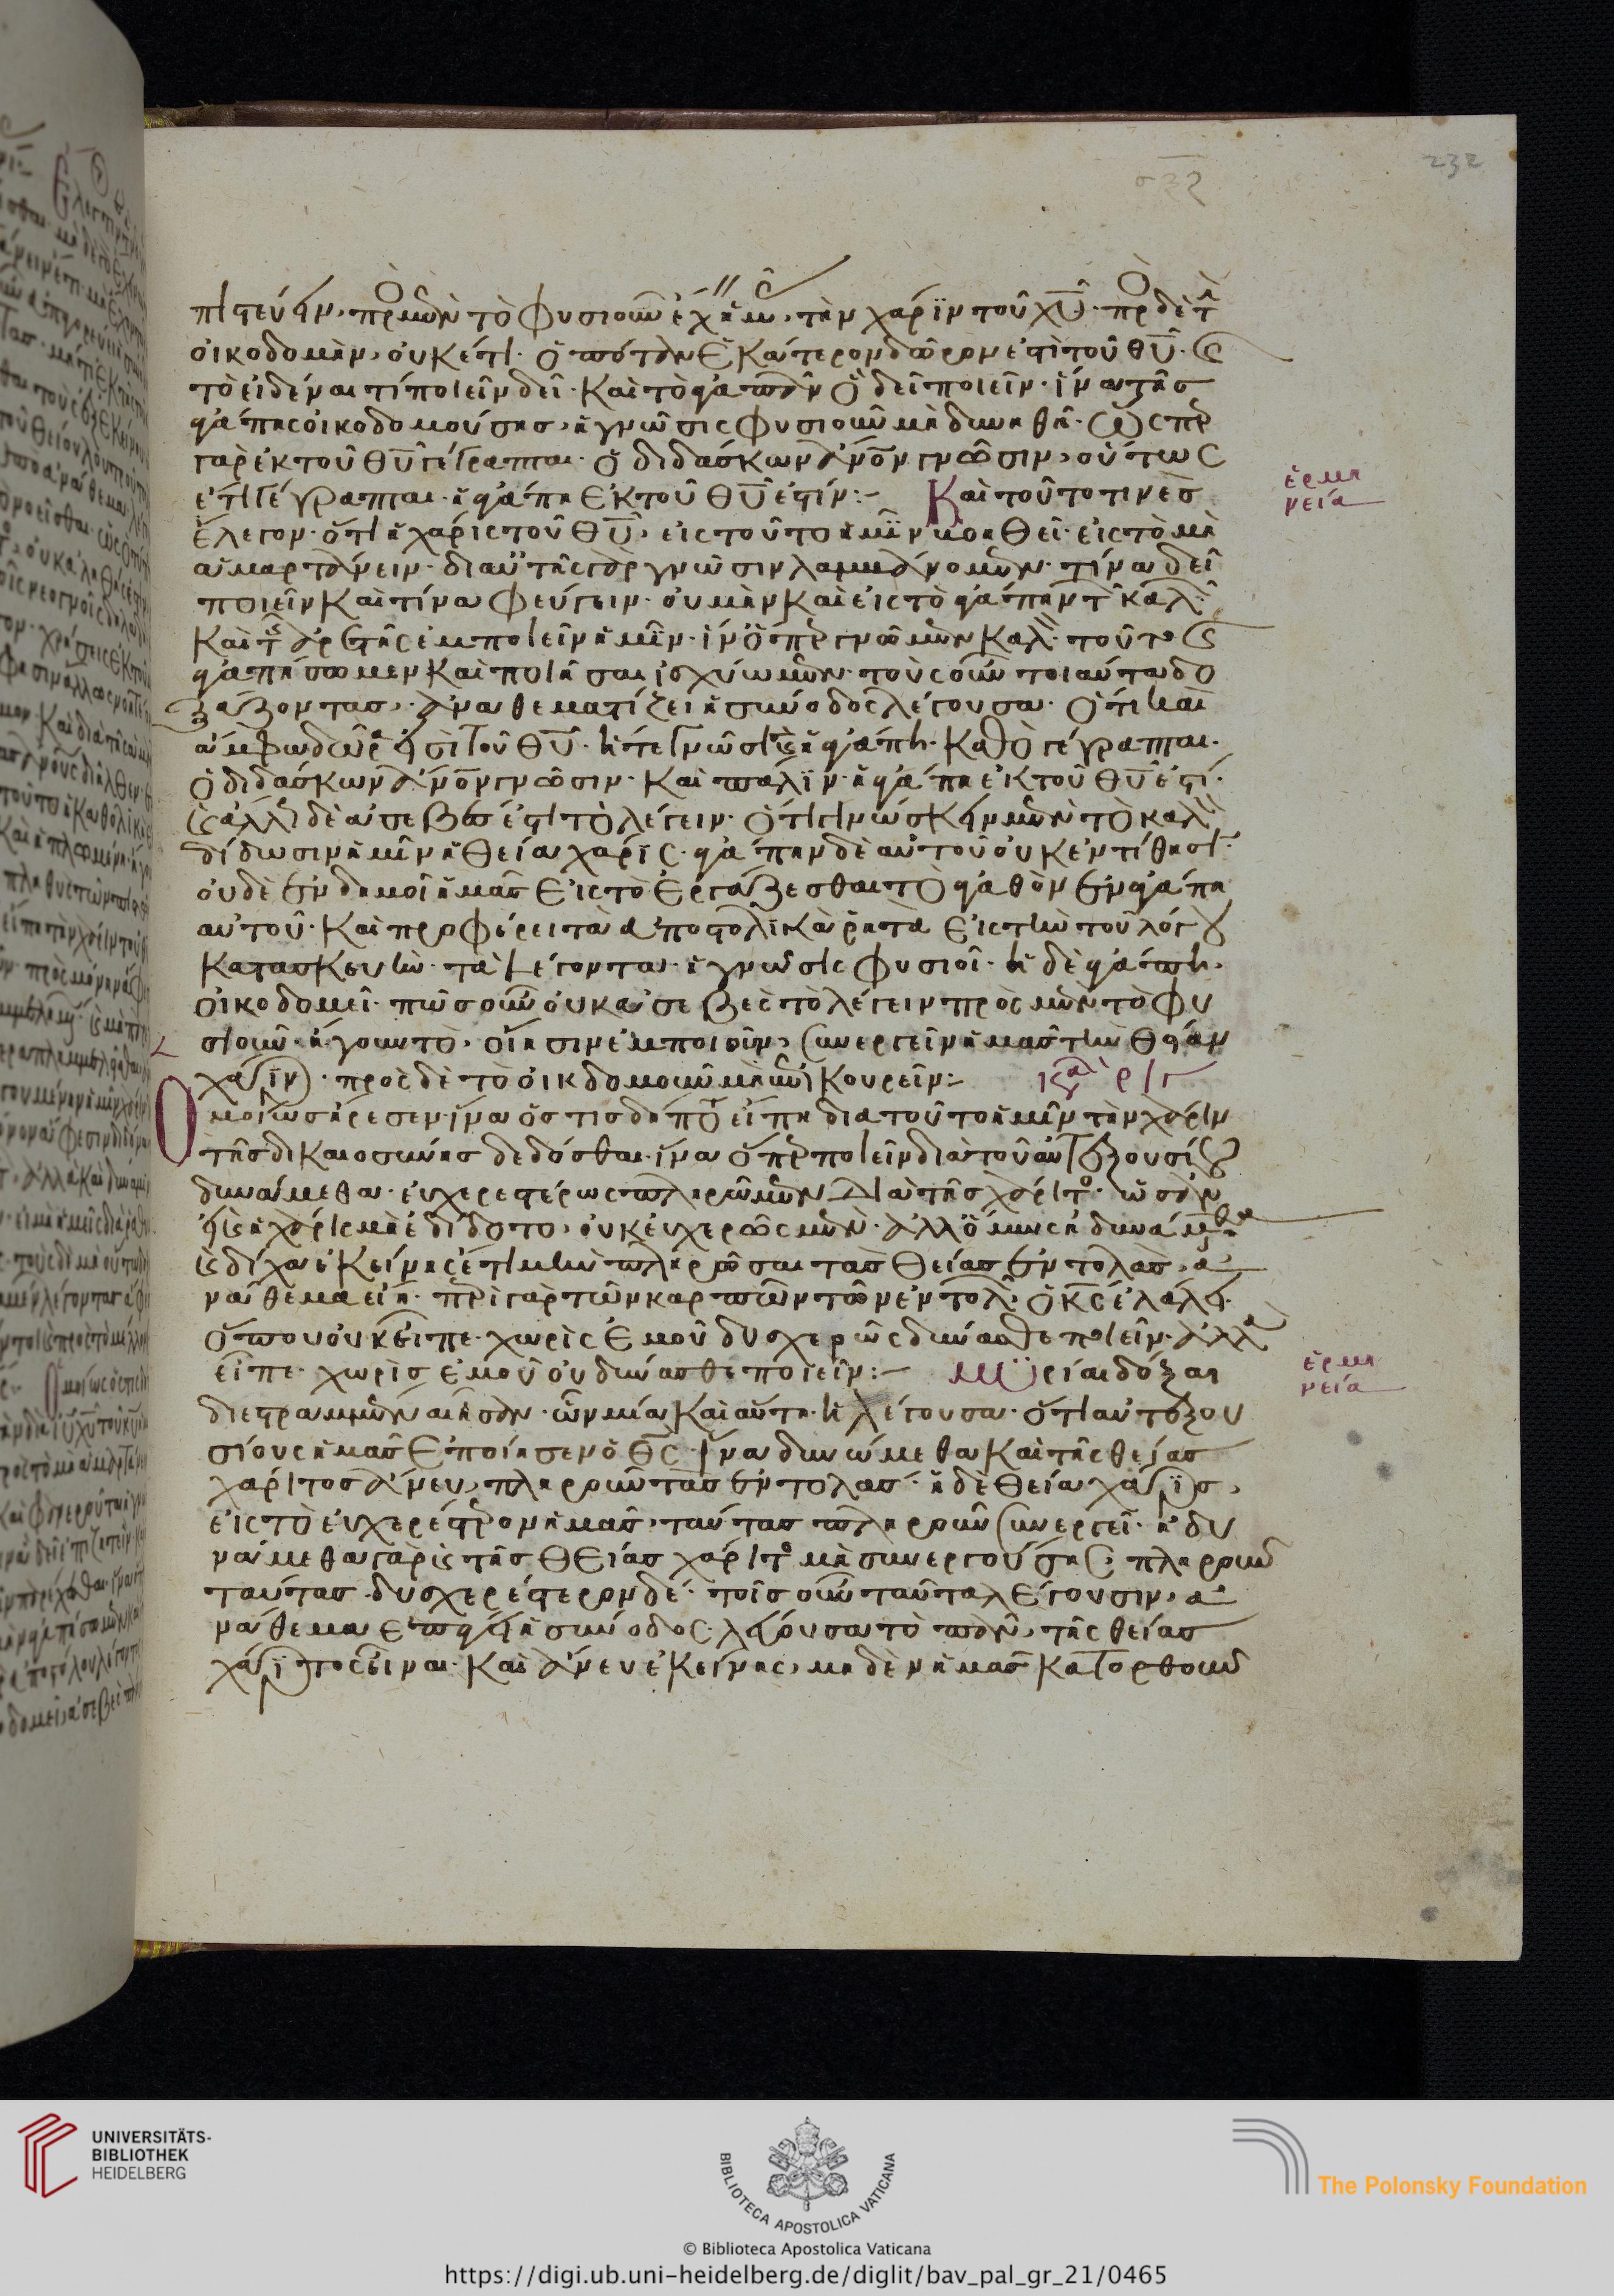 232
πιστεύειν· πρὸς μὲν τὸ φυσιοῦν ἔχειν ἡμᾶς τὴν χάριν τοῦ χυ· πρὸς δὲ τὴν
οἰκοδομὴν, οὐκέτι· ὁπόταν ἑκάτερον δῶρον ἐστὶ τοῦ θυ· καὶ
τὸ εἰδέναι τί ποιεῖν δεῖ· καὶ τὸ ἀγαπᾶν ὃ δεῖ ποιεῖν· ἵνα τῆς
ἀγάπης οἰκοδομούσης, ἡ γνῶσις φυσιοῦν μὴ δυνηθῇ· ὥσπερ
γὰρ ἐκ τοῦ θυ γέγραπται· ὁ διδάσκων ἄνον γνῶσιν, οὕτως
ἔτι γέγραπται· ἡ ἀγάπη ἐκ τοῦ θυ ἐστίν:- Καὶ τοῦτο τινὲς
ἑρμη
νεία
ἔλεγον· ὅτι ἡ χάρις τοῦ θυ, εἰς τοῦτο ἡμῖν βοηθεῖ· εἰς τὸ μὴ
ἁμαρτάνειν· δι αὐτῆς γὰρ γνῶσιν λαμβάνομεν· τίνα δεῖ
ποιεῖν καὶ τίνα φεύγειν· οὐ μὴν καὶ εἰς τὸ ἀγάπην τοῦ καλοῦ
καὶ τῆς ἀρετῆς ἐμποιεῖν ἡμῖν· ἵν ὅπερ γνῶμεν καλὸν τοῦτο καὶ
ἀγαπήσωμεν καὶ ποιῆσαι ἰσχύωμεν· τοὺς οὖν τοιαῦτα δο
ξάζοντας, ἀναθεματίζει ἡ σύνοδος λέγουσα· ὅτι καὶ
ἄμφω δῶρά εἰσι τοῦ θυ· ἥ τε γνῶσις καὶ ἡ ἀγάπη· καθὸ γέγραπται·
ὁ διδάσκων ἄνον γνῶσιν· καὶ πάλιν· ἡ ἀγάπη ἐκ τοῦ θυ ἐστί·
καὶ ἄλλως δὲ ἀσεβές ἐστι τὸ λέγειν· ὅτι γινώσκειν μὲν τὸ καλὸν
δίδωσιν ἡμῖν ἡ θεία χάρις· ἀγάπην δὲ αὐτοῦ οὐκ ἐντίθησι·
οὐδὲ ἐνδυναμοῖ ἡμᾶς εἰς τὸ ἐργάζεσθαι τὸ ἀγαθὸν ἐν ἀγάπη
αὐτοῦ· καὶ προφέρει τὰ ἀποστολικὰ ῥητὰ εἰς τὴν τοῦ λόγου
κατασκευὴν· τὰ λέγοντα· ἡ γνῶσις φυσιοῖ· ἡ δὲ ἀγάπη,
οἰκοδομεῖ· πῶς οὖν οὐκ ἀσεβὲς τὸ λέγειν πρὸς μὲν τὸ φυ
σιοῦν· ἤγουν τὸ, οἴησιν ἐμποιοῦν, συνεργεῖν ἡμᾶς τὴν θείαν
χάριν· πρὸς δὲ τὸ οἰκδομοῦν μὴ ἐπικουρεῖν:-
Ὁμοίως ἤρεσεν· ἵνα ὅστις δήποτε εἴπη διὰ τοῦτο ἡμῖν τὴν χάριν
τῆς δικαιοσύνης δεδόσθαι· ἵνα ὅπερ ποιεῖν διὰ τοῦ αὐτεξουσίου
δυνάμεθα· εὐχερεστέρως πληρῶμεν διὰ τῆς χάριτος· ὡσὰν
εἰ καὶ ἡ χάρις μὴ ἐδίδοτο, οὐκ εὐχερῶς μὲν· ἀλλ ὅμως ἠδυνάμεθα
καὶ δίχα ἐκείνης ἔτι μὴν πληρῶσαι τὰς θείας ἐντολὰς, ἀ
νάθεμα εἴη· περὶ γὰρ τῶν καρπῶν τῶν ἐντολῶν ὁ κς ἐλάλει·
ὅπου οὐκ εἶπε· χωρὶς ἐμοῦ δυσχερῶς δύνασθε ποιεῖν· ἀλλὰ
εἶπε· χωρὶς ἐμοῦ οὐ δύνασθε ποιεῖν:- Μυρίαι δόξαι
ἑρμη
νεία
διεστραμμέναι ἦσαν· ὧν μία καὶ αὕτη· ἡ λέγουσα· ὅτι αὐτεξου
σίους ἡμᾶς ἐποίησεν ὁ θς· ἵνα δυνώμεθα καὶ τῆς θείας
χάριτος ἄνευ, πληροῦν τὰς ἐντολάς· ἡ δὲ θεία χάρις,
εἰς τὸ εὐχερέστερον ἡμᾶς, ταύτας πληροῦν συνεργεῖ· ἠδυ
νάμεθα γὰρ καὶ τῆς θείας χάριτος μὴ συνεργούσης, πληροῦν
ταύτας· δυσχερέστερον δέ· τοῖς οὖν ταῦτα λέγουσιν, ἀ
νάθεμα ἐπάγει ἡ σύνοδος· λέγουσα τὸ πᾶν, τῆς θείας
χάριτος εἶναι· καὶ ἄνευ ἐκείνης, μηδὲν ἡμᾶς κατορθοῦν
UNIVERSITÄTS-
BIBLIOTHEK
HEIDELBERG
BIBLIOTECA APOSTOLICA VATICANA
The Polonsky Foundation
© Biblioteca Apostolica Vaticana
https://digi.ub.uni-heidelberg.de/diglit/bav_pal_gr_21/0465